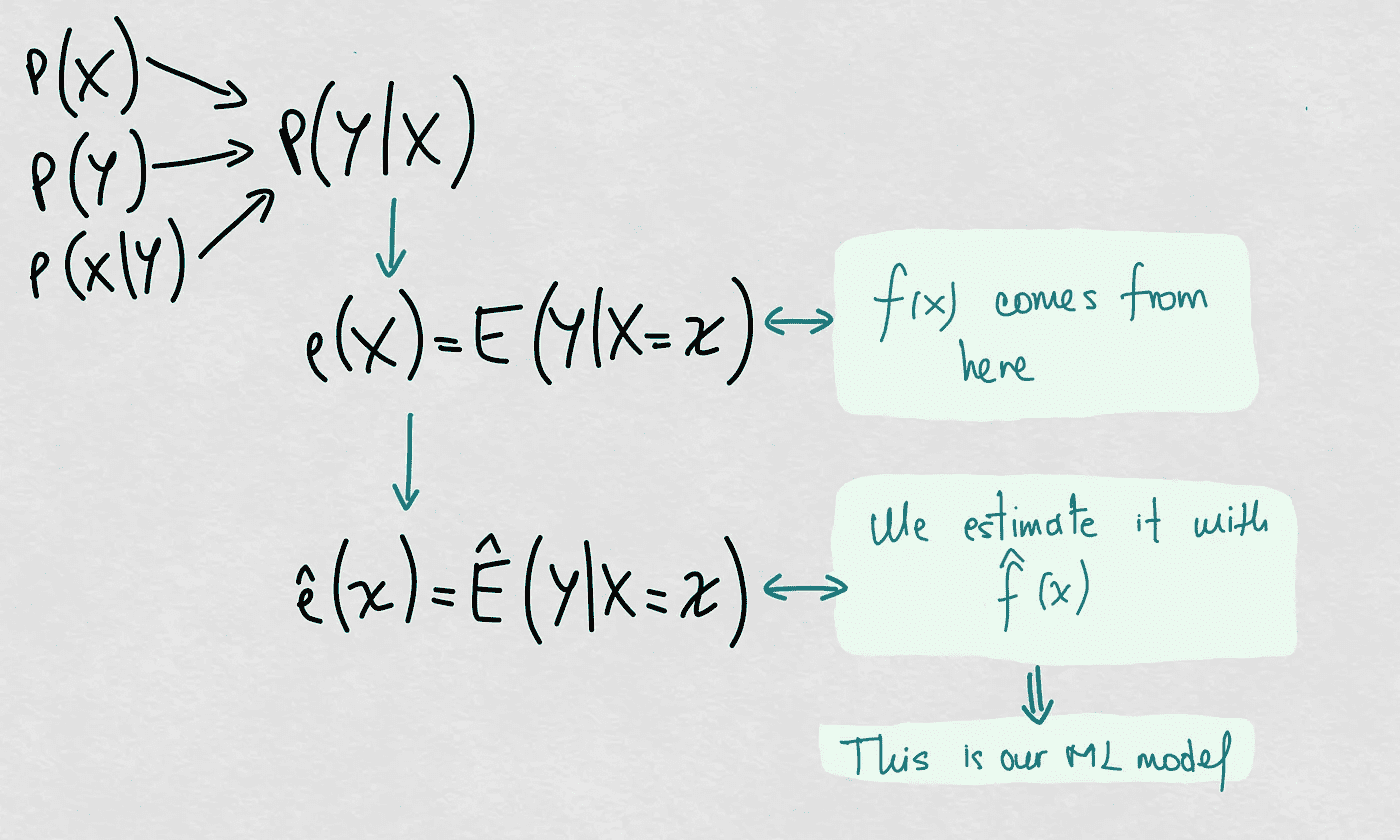 P(X)
P(Y)
P(X|Y)
P(Y|X)
e(X)=E(Y|X=x)
f(x) comes from
here
ê(x)=Ê(Y|X=x)
We estimate it with
f̂(x)
This is our ML model